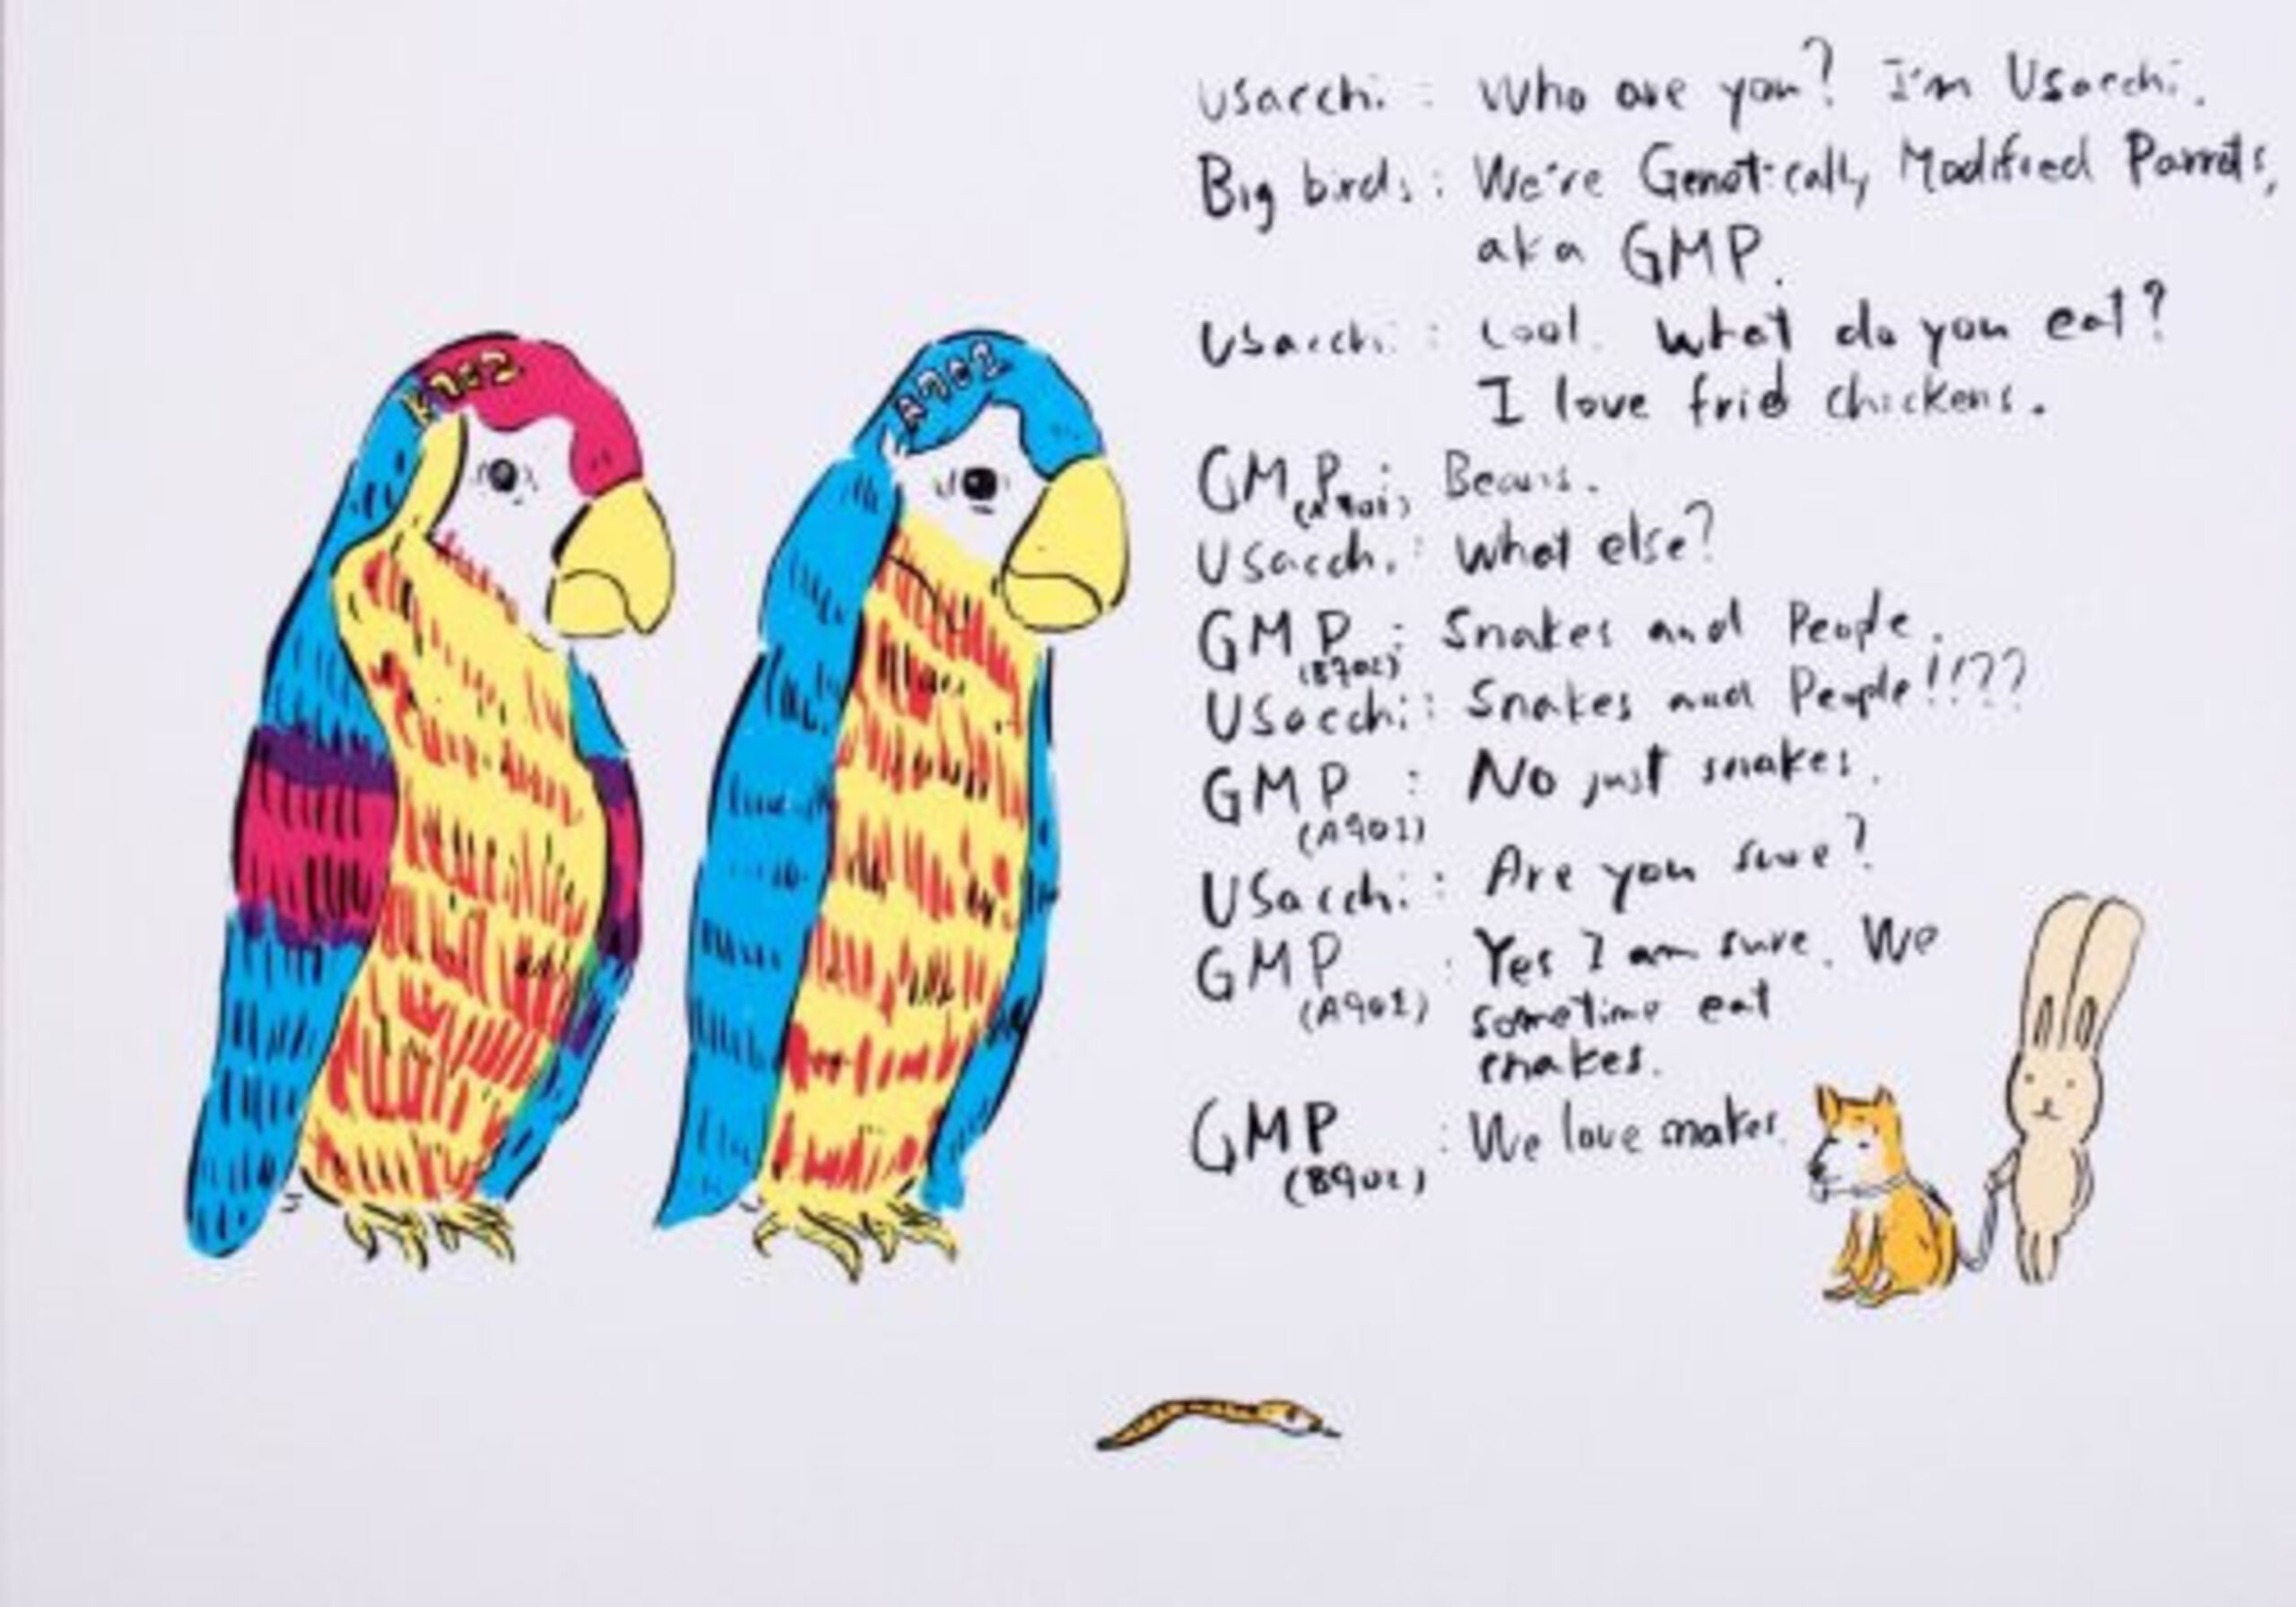 K702
A702
Usacchi : Who are you? I'm Usacchi.
Big birds : We're Genetically Modified Parrots,
aka GMP.
Usacchi : Cool. What do you eat?
I love frid chickens.
GMP : Beans.
Usacchi : What else?
GMP : Snakes and People.
Usacchi : Snakes and People!!??
GMP : No just snakes.
(A901)
Usacchi : Are you sure?
GMP : Yes I am sure. We
(A901) sometime eat
snakes.
GMP : We love snakes.